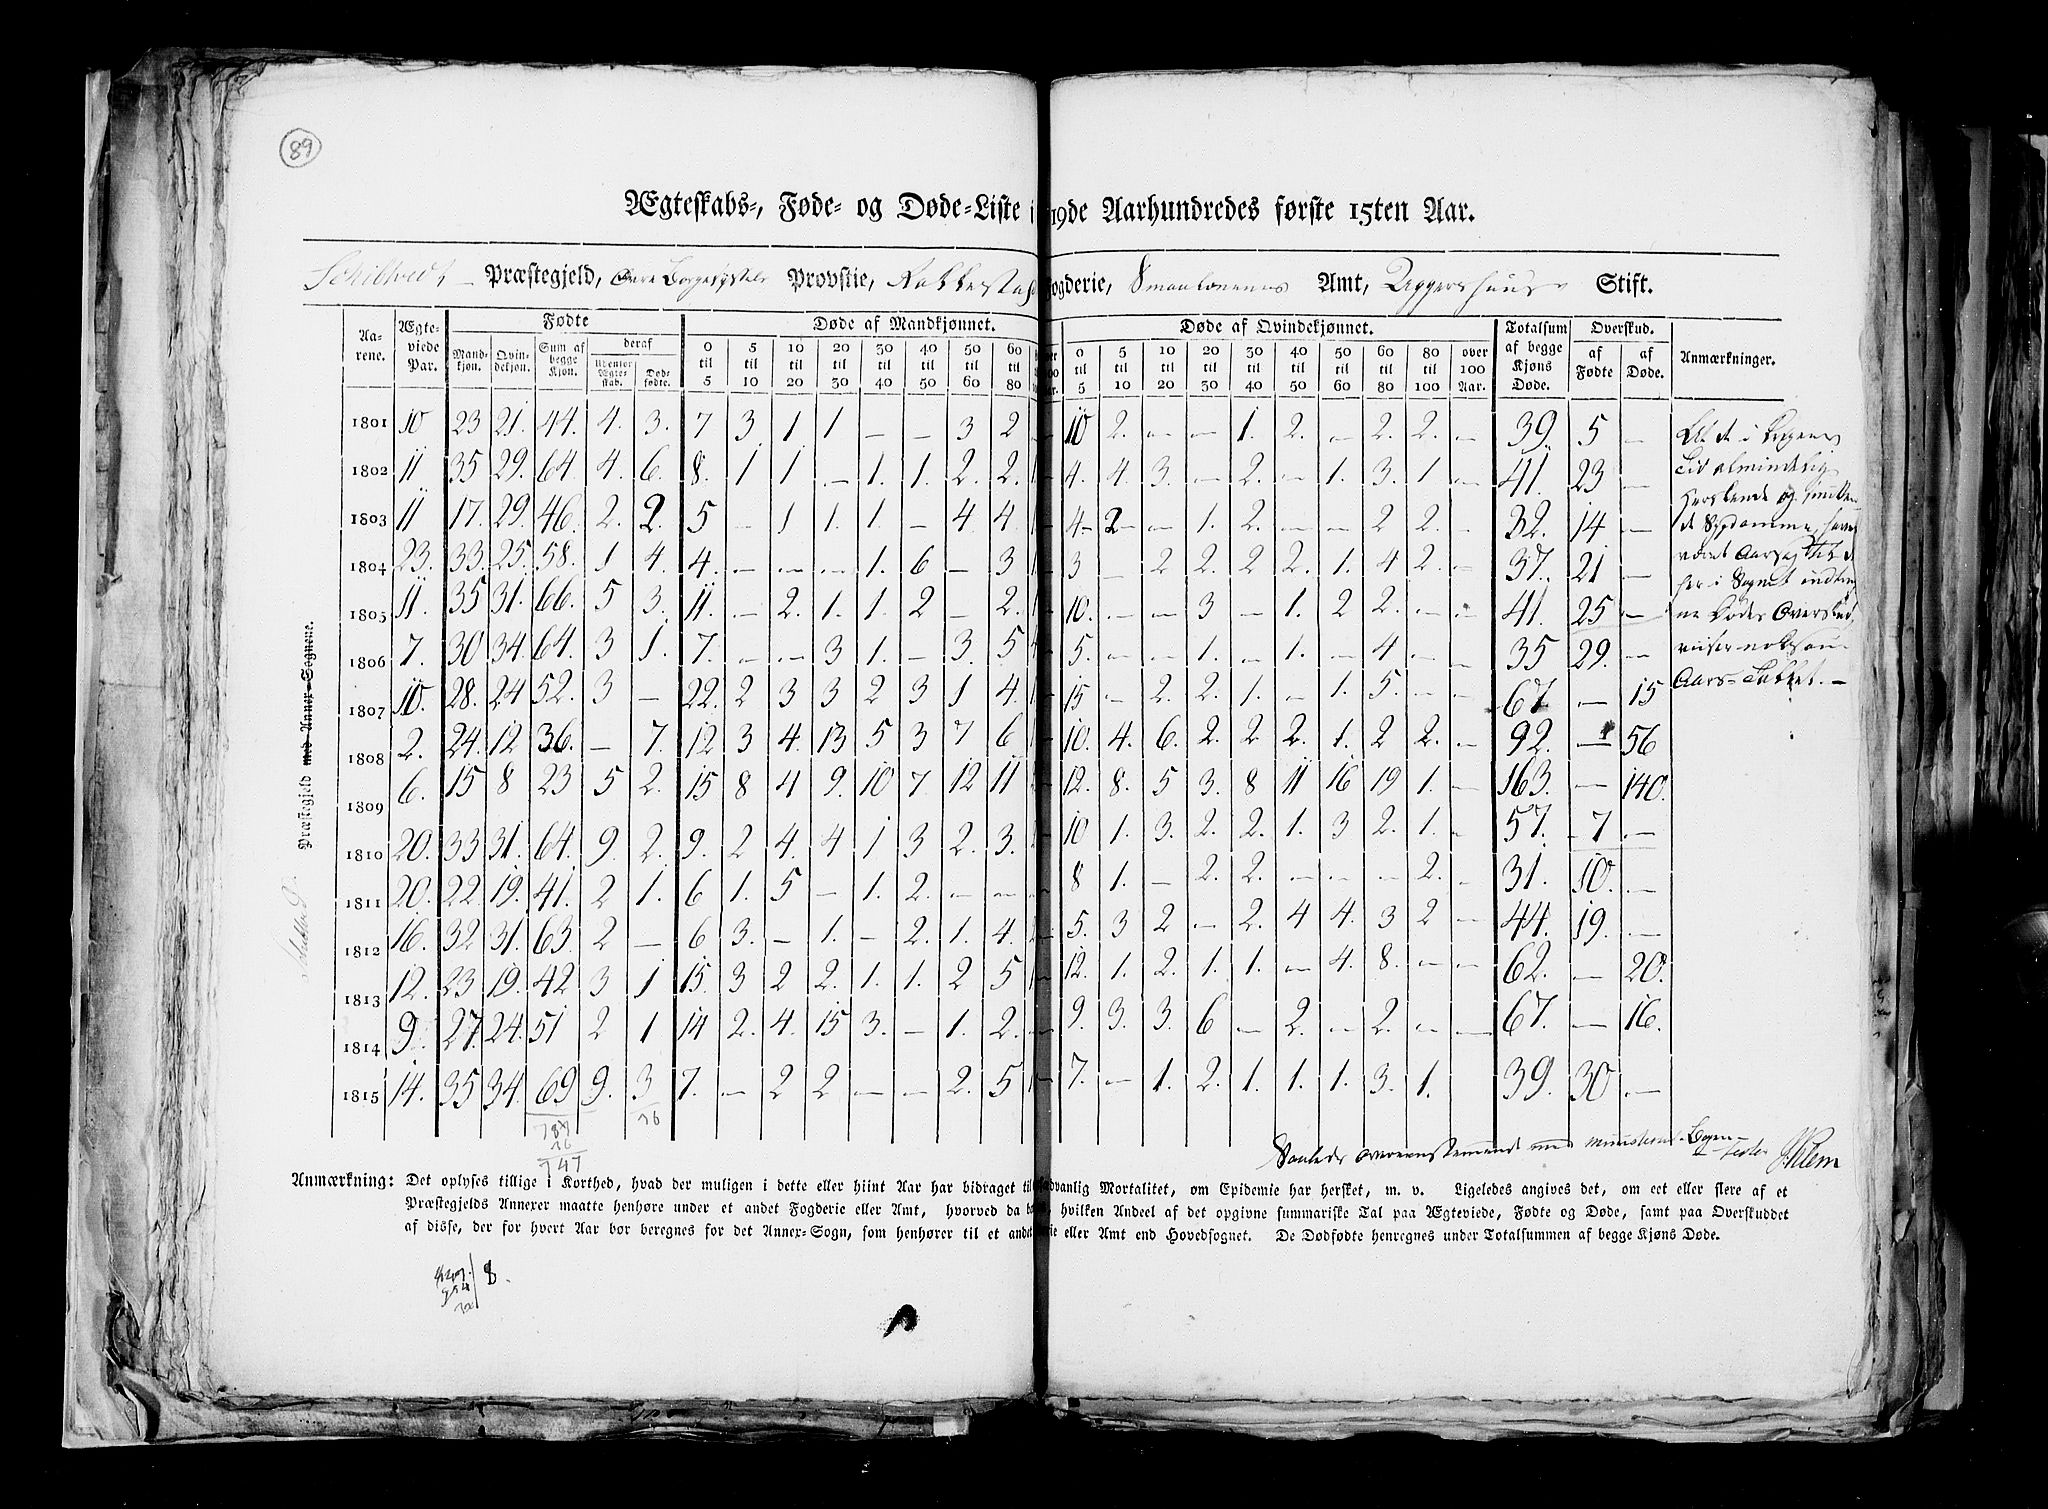 89
Ægteskabs-, Føde- og Døde-Liste i 19de Aarhundredes første 15ten Aar.
Schibtvedt Præstegjeld, Øvre Borgesyssels Provstie, Rakkestad Fogderie, Smaalenenes Amt, Aggershuus Stift.
Aarene. Ægteviede Par. Fødte Døde af Mandkjønnet. Døde af Qvindekjønnet. Totalsum af begge Kjøns Døde. Overskud. Anmærkninger.
Mandkjøn. Qvindekjøn. Sum af begge Kjøn. deraf Udenfor Ægteskab. Dødfødte. 0 til 5 5 til 10 10 til 20 20 til 30 30 til 40 40 til 50 50 til 60 60 til 80 0 til 5 5 til 10 10 til 20 20 til 30 30 til 40 40 til 50 50 til 60 60 til 80 80 til 100 over 100 Aar. af Fødte af Døde.
Præstegjeld med Annex-Sognene.
1801 10 23 21. 44. 4. 3. 7 3. 1 1 — — 3 2 — 10 2. — — 1. 2. — 2. 2. — 39. 5 —
1802 11 35 29. 64. 4. 6. 8. 1 1 — 1. 1. 2. 2. 4. 4 3. — 2. — 1. 3. 1 — 41. 23 —
1803 11 17. 29. 46. 2. 2. 5 — 1 1. 1. — 4 4. 4 2 — 1. 2. — — 2 2. — 32. 14 —
1804 23. 33. 25. 58. 1 4. 4. — — — 1. 6 — 3 3 — 2 2. 2 2. 1. 4 2. — 37. 21 —
1805 11. 35 31. 66. 5 3. 11. — 2. 1. 1. 2 — 2. 10. — — 3 — 1. 2 2. — — 41. 25 —
1806 7. 30 34. 64. 3 1. 7. — — 3 1. — 3. 5 5. — — 1. — 1. — 4 — — 35 29. —
1807 10. 28. 24 52. 3 — 22. 2 3 3 2 3 1 4. 15 — 2. 2. 1. — 1. 5. — — 67. — 15
1808 2. 24. 12 36. — 7. 12 3 4. 13 5 3 7 6 10. 4. 6. 2. 2 2. 1. 2 2. — 92. — 56
1809 6. 15 8 23 5 2. 15 8 4 9. 10 7. 12 11 12. 8. 5 3. 8 11 16 19 1. — 163. — 140.
1810 20. 33 31. 64. 9. 2. 9. 2 4. 4 1 3 2. 3. 10 1. 3. 2. 2. 1. 3 2. 1. — 57. 7 —
1811 20. 22. 19. 41. 2 1. 6 1. 5 — 1. 2. — — 8 1. — 2. 2. — — — 2. — 31. 10. —
1812 16. 32 31. 63. 2 — 6 3. — 1. — 2. 1. 4. 5. 3 2 — 2. 4 4. 3 2 — 44. 19. —
1813 12. 23 19. 42 3 1 15. 3 2 2. 1. 1. 2 5 12. 1. 2. 1. 1. — 4. 8. — — 62. — 20.
1814 9. 27. 24. 51 2 1 14 2. 4. 15 3. — 1. 2. 9. 3. 3. 6 — 2. — 2. — — 67. — 16.
1815 14. 35 34. 69 9. 3 7. — 2 2 — — 2. 5 7. — 1. 2. 1. 1. 1. 3. 1. 39. 30 —
At de i Krigens
Tid almindelig
herskende og smitten-
de Sygdomme, have
været Aarsag til de
her i Sognet
Dødes Overskud,
viser noksom
Aars-Tallet. —
36
783
36
747
Anmærkning: Det oplyses tillige i Korthed, hvad der muligen i dette eller hiint Aar har bidraget til sædvanlig Mortalitet, om Epidemie har hersket, m. v. Ligeledes angives det, om eet eller flere af et
Præstegjelds Annexer maatte henhøre under et andet Fogderie eller Amt, hvorved da hvilken Andeel af det opgivne summariske Tal paa Ægteviede, Fødte og Døde, samt paa Overskuddet
af disse, der for hvert Aar bør beregnes for det Annex-Sogn, som henhører til et andet eller Amt end Hovedsognet. De Dødfødte henregnes under Totalsummen af begge Kjøns Døde.
8.